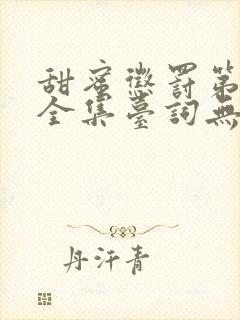 甜蜜懲罰第
全集臺詞無
丹汗青